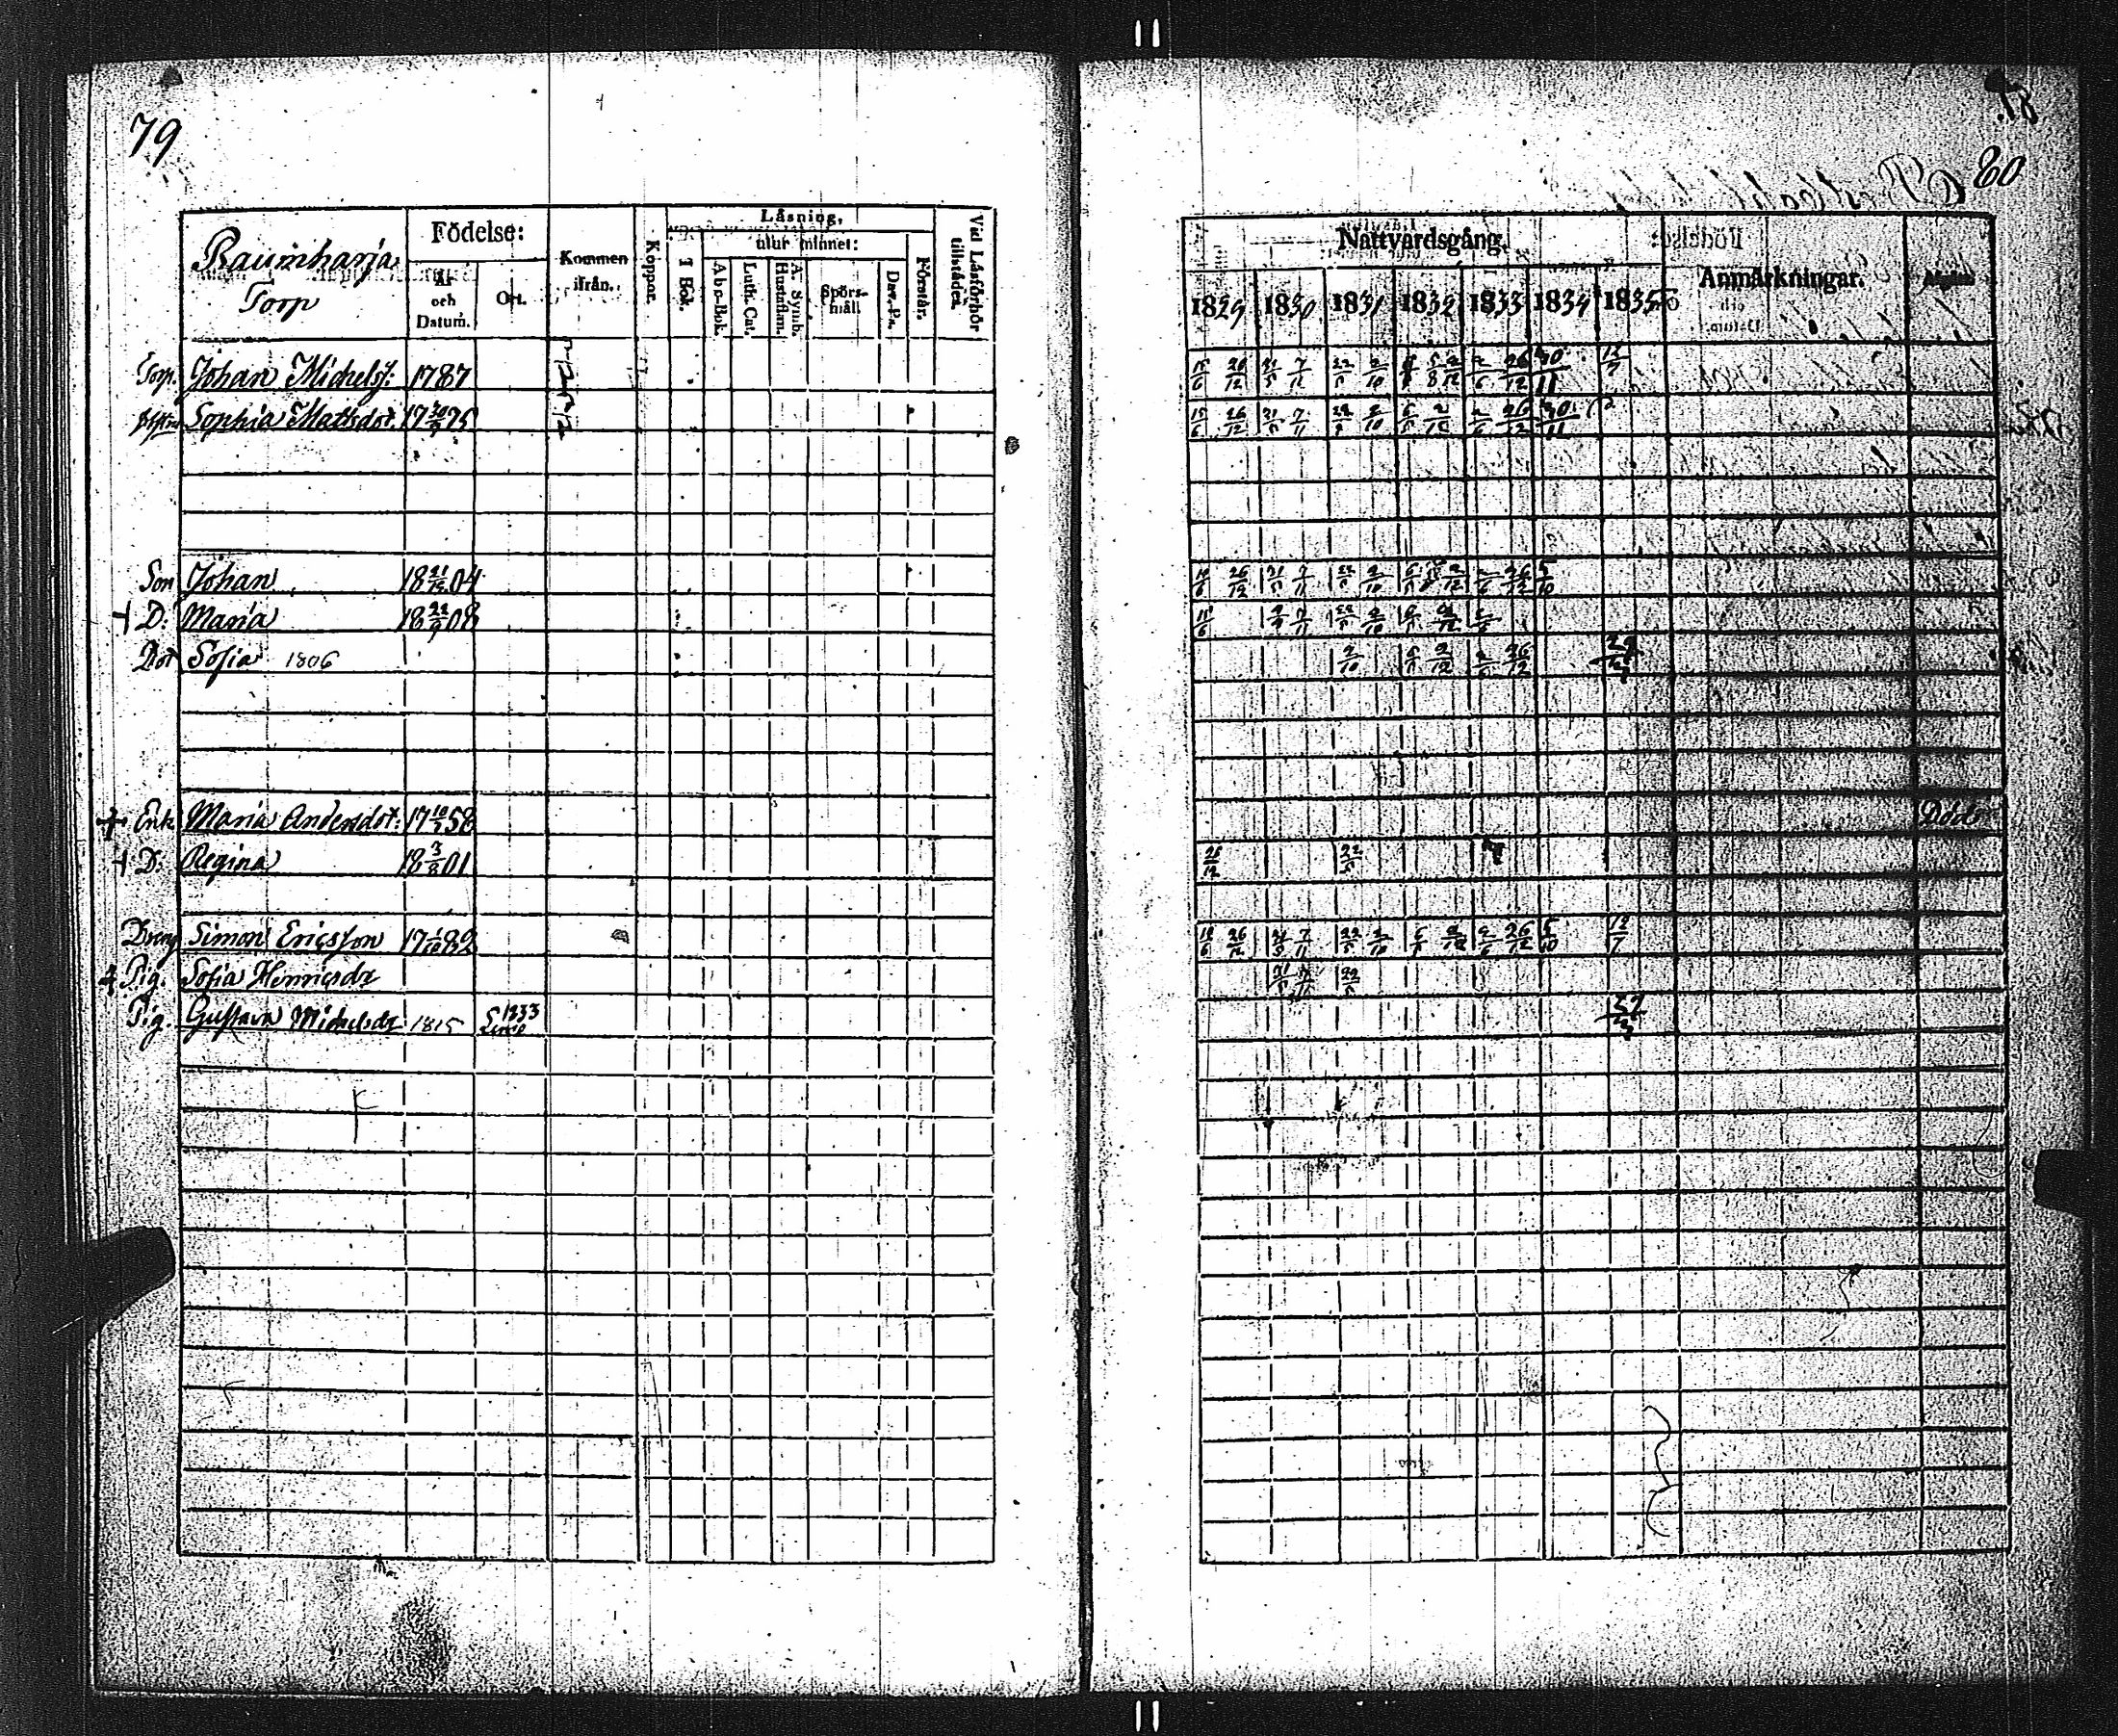 79
Raumharja
Torp
Födelse:
År och Datum.
Ort.
Kommen ifrån.
Koppor.
Läsning,
I Bok.
utur minnet:
Abc-Bok.
Luth. Cat.
A. Symb. Hustafl.
Spörs-mål.
Dav. Ps.
Förstår.
Vid Läsförhör tillstädes.
Torp. Johan Michelsf. 1787
Sophia Mattsdot. 17 30/9 75
Son Johan 18 21/12 04
D: Maria 18 22/9 08
Dot Sofia 1806
Enk Maria Andersdot: 17 10/7 58
D: Regina 18 3/8 01
Dreng Simon Ericsson 17 1/10 82
Pig. Sofia Henricsdr
Pig. Gustava Michelsdr 1815 1833
80
Nattvardsgång.
Anmärkningar.
1829 1830 1831 1832 1833 1834 1835
15/6 26/12 7/11 22/5 2/10 2/12 2/6 26/12 30/11 12/7
15/6 26/12 7/11 22/5 2/10 2/12 2/6 26/12 30/11
26/12 7/11 22/5 2/10 2/12 2/6 26/12 5/10
7/11 22/5 2/10 2/12 2/6
2/10 2/12 2/6 26/12
Död
26/12 22/5
26/12 7/11 22/5 2/10 2/12 2/6 26/12 5/10 12/7
7/11 22/5